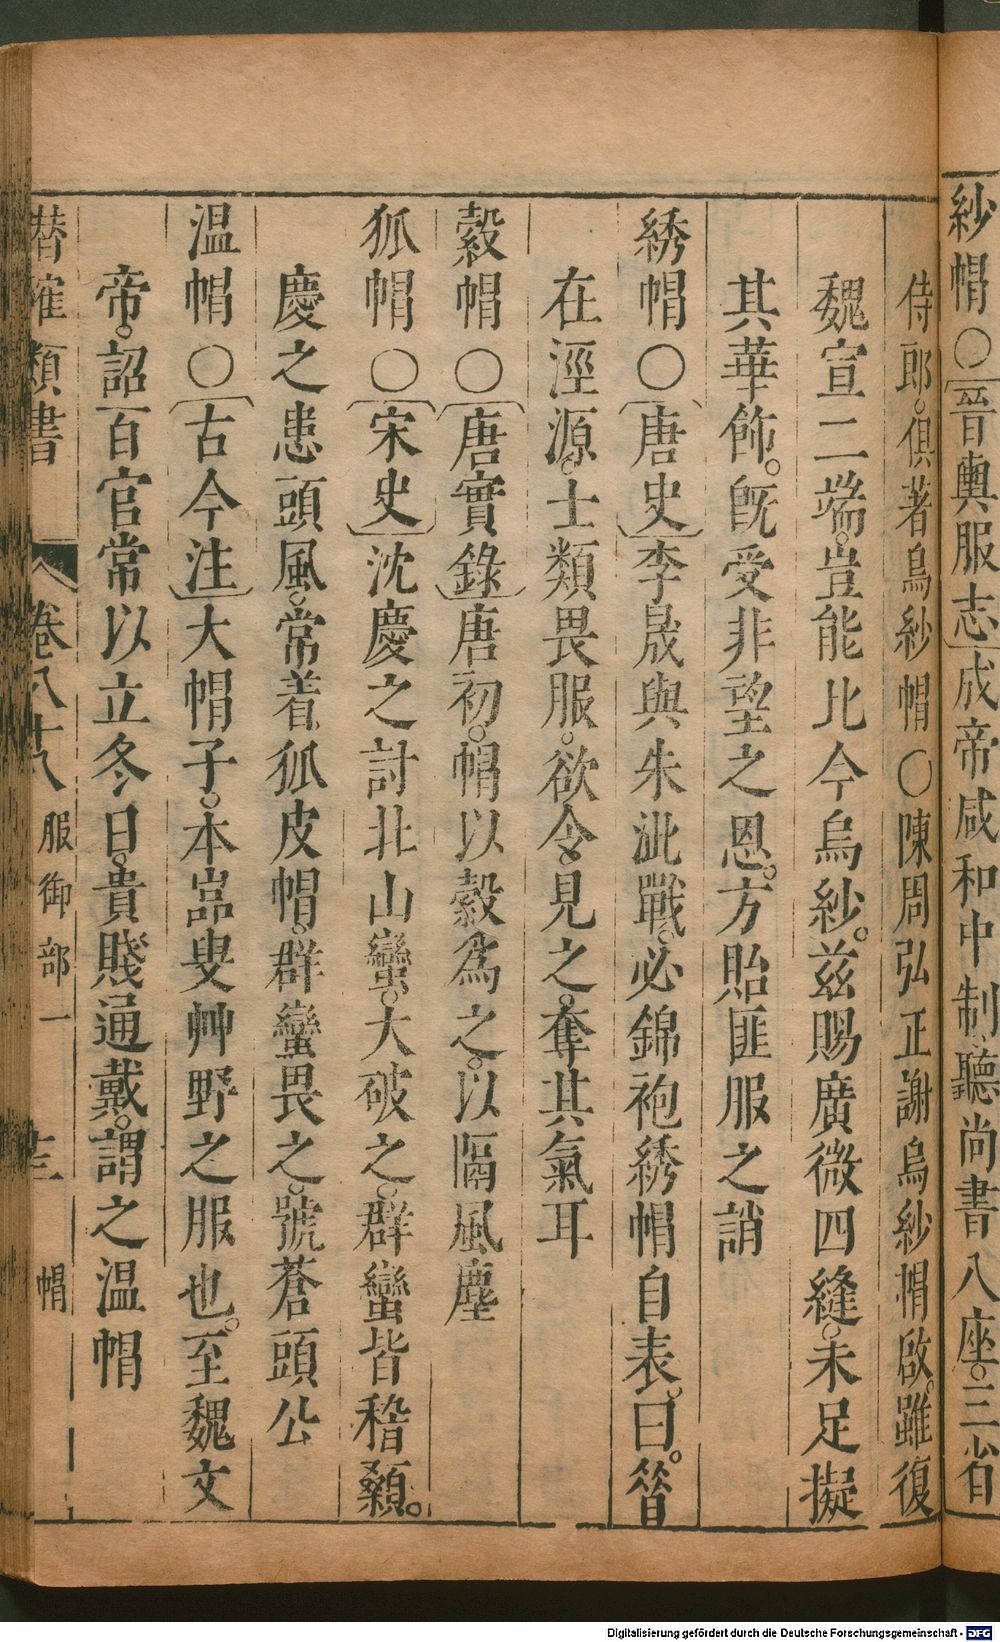 紗帽〇〔晉輿服志〕成帝咸和中制聽尚書八座三省
侍郎俱著烏紗帽〇陳周弘正謝烏紗帽啟雖復
魏宣二端豈能比今烏紗兹賜廣微四縫未足擬
其華飾既受非望之恩方貽匪服之誚
綉帽〇〔唐史〕李晟與朱泚戰必錦袍綉帽自表曰
在涇源士類畏服欲令見之奪其氣耳
縠帽〇〔唐實錄〕唐初帽以縠爲之以隔風塵
狐帽〇〔宋史〕沈慶之討北山蠻大破之群蠻皆稽顙
慶之患頭風常着狐皮帽群蠻畏之號蒼頭公
温帽〇〔古今注〕大帽子本嵓叟艸野之服也至魏文
帝詔百官常以立冬日貴賤通戴謂之温帽
潛確類書 卷八十八 服御部一 帽
Digitalisierung gefördert durch die Deutsche Forschungsgemeinschaft - DFG